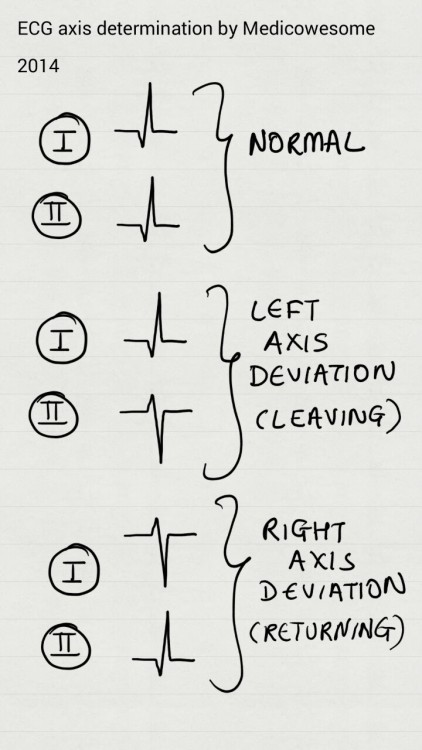 ECG axis determination by Medicowesome
2014
I
II
NORMAL
I
II
LEFT
AXIS
DEVIATION
(CLEAVING)
I
II
RIGHT
AXIS
DEVIATION
(RETURNING)